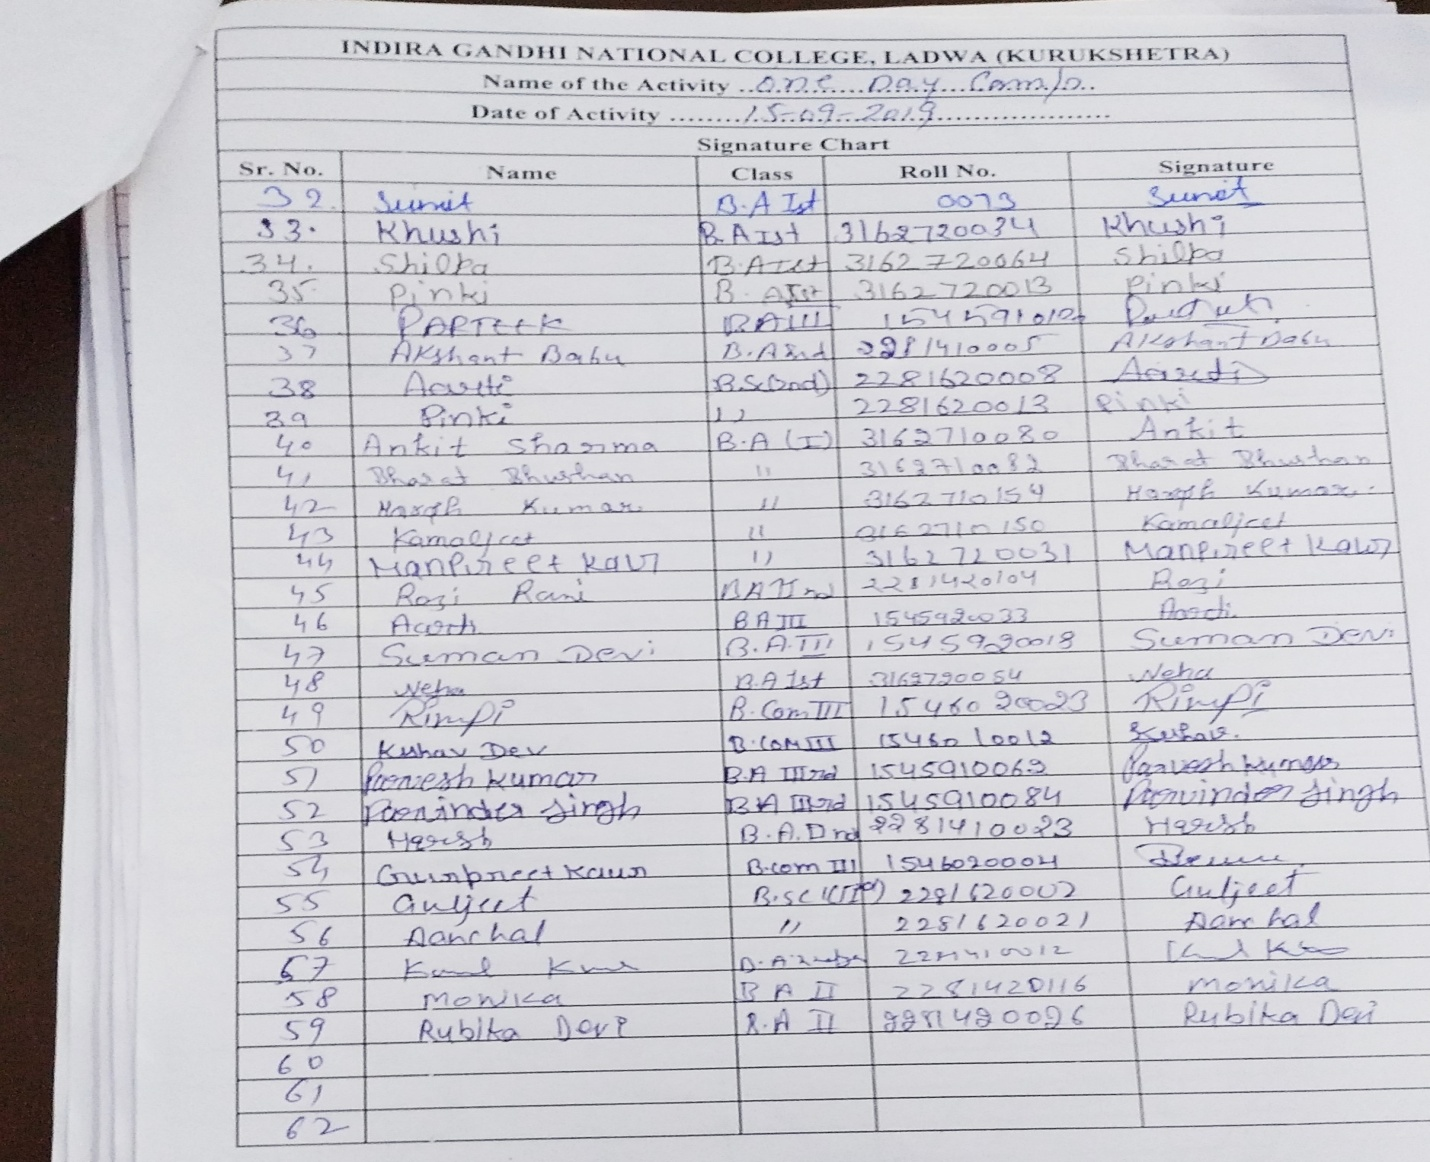 INDIRA GANDHI NATIONAL COLLEGE, LADWA (KURUKSHETRA)
Name of the Activity ..One....Day...Camp..
Date of Activity ........15-09-2019....................
Signature Chart
Sr. No. Name Class Roll No. Signature
32. Sumit B.A Ist 0073 Sumit
33. Khushi B.A Ist 3162720034 Khushi
34. Shilpa B.A Ist 3162720064 Shilpa
35. Pinki B.A Ist 3162720013 Pinki
36 PARTEEK BA III
37 Akshant Babu B.A 2nd 2281410005 Akshant Babu
38 Aarti B.Sc(2nd) 2281620008 Aarti
39 Pinki 11 2281620013 Pinki
40 Ankit Sharma B.A (I) 3162710080 Ankit
41 Bharat Bhushan 11 3162710082 Bharat Bhushan
42 Harsh Kumar 11 3162710154 Harsh Kumar
43 Kamaljeet 11 3162710150 Kamaljeet
44 Manpreet Kaur 11 3162720031 Manpreet Kaur
45 Rozi Rani BA IInd 2281420104 Rozi
46 Aarti BA III 1545920033 Aarti
47 Suman Devi B.A.III 1545920018 Suman Devi
48 Neha B.A Ist 3162720054 Neha
49 Rimpi B.Com III 1546020023 Rimpi
50 Keshav Dev B.COM III 1546010012 Keshav.
51 Parvesh Kumar B.A IIIrd 1545910069 Parvesh Kumar
52 Parvinder Singh BA IIIrd 1545910084 Parvinder Singh
53 Harsh B.A. 2281410023 Harsh
54 Gurpreet Kaur B.com III 1546020004
55 Guljeet B.sc 2281620002 Guljeet
56 Aanchal 11 2281620021 Aanchal
57
58 Monika BA II 2281420116 Monika
59 Rubika Devi B.A II 2281420026 Rubika Devi
60
61
62